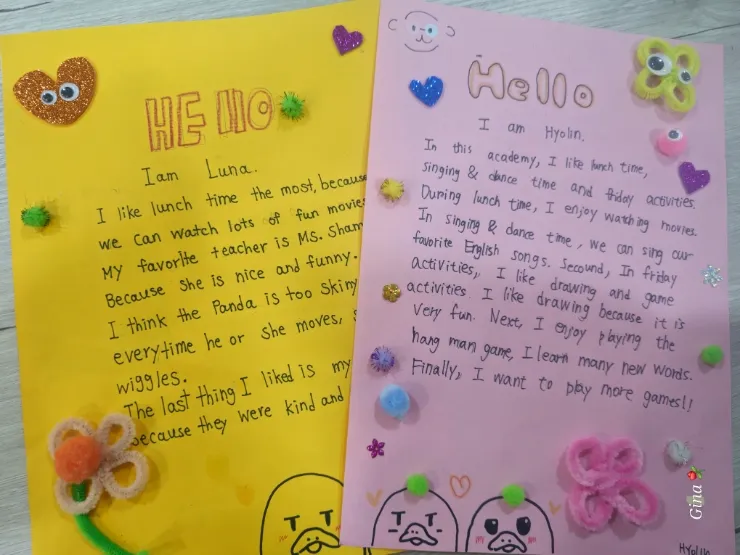 HEllO
I am Luna.
I like lunch time the most, because
we can watch lots of fun movies
My favorite teacher is MS. Sham
Because she is nice and funny.
I think the Panda is too skiny
everytime he or she moves,
wiggles.
The last thing I liked is my
because they were kind and
Hello
I am Hyolin.
In this academy, I like lunch time,
singing & dance time and friday activities.
During lunch time, I enjoy watching movies.
In singing & dance time, we can sing our
favorite English songs. Secound, In friday
activities, I like drawing and game
activities. I like drawing because it is
very fun. Next, I enjoy playing the
hang man game, I learn many new words.
Finally, I want to play more games!!
Hyolin
Gina